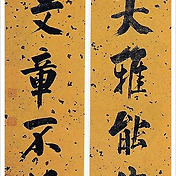 大雅能
文章不